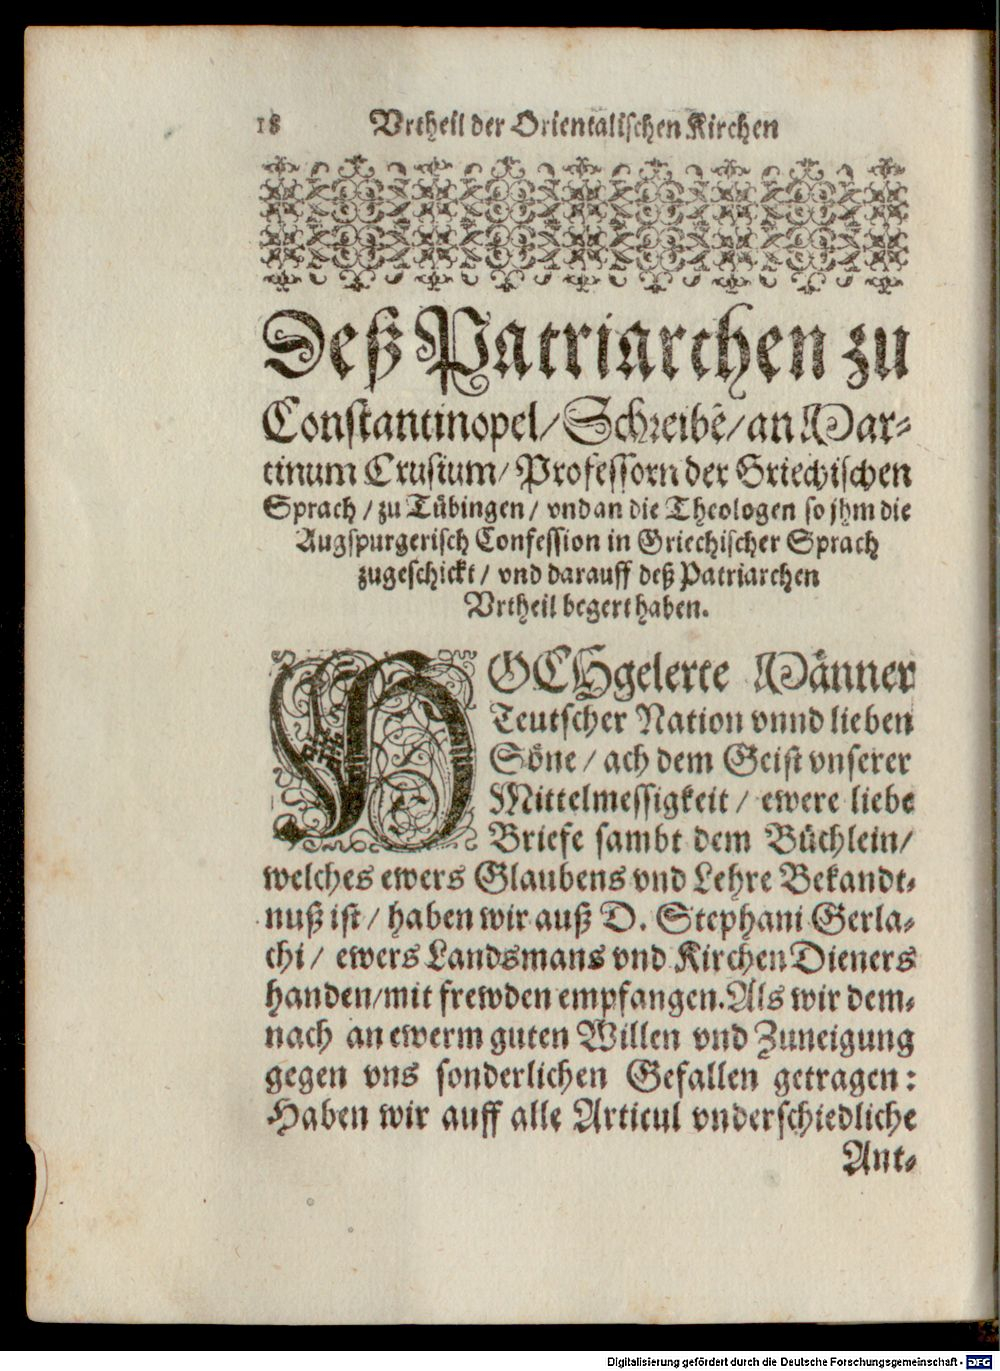 18 Vrtheil der Orientalischen Kirchen
Deß Patriarchen zu
Constantinopel/ Schreibē/ an Mar-
tinum Crusium/ Professorn der Griechischen
Sprach / zu Tübingen / vnd an die Theologen so jhm die
Augspurgerisch Confession in Griechischer Sprach
zugeschickt / vnd darauff deß Patriarchen
Vrtheil begert haben.
HOCHgelerte Männer
Teutscher Nation vnnd lieben
Söne / ach dem Geist vnserer
Mittelmessigkeit / ewere liebe
Briefe sambt dem Büchlein/
welches ewers Glaubens vnd Lehre Bekandt-
nuß ist / haben wir auß D. Stephani Gerla-
chi / ewers Landsmans vnd Kirchen Dieners
handen/mit frewden empfangen. Als wir dem-
nach an ewerm guten Willen vnd Zuneigung
gegen vns sonderlichen Gefallen getragen:
Haben wir auff alle Articul vnderschiedliche
Ant-
Digitalisierung gefördert durch die Deutsche Forschungsgemeinschaft - DFG